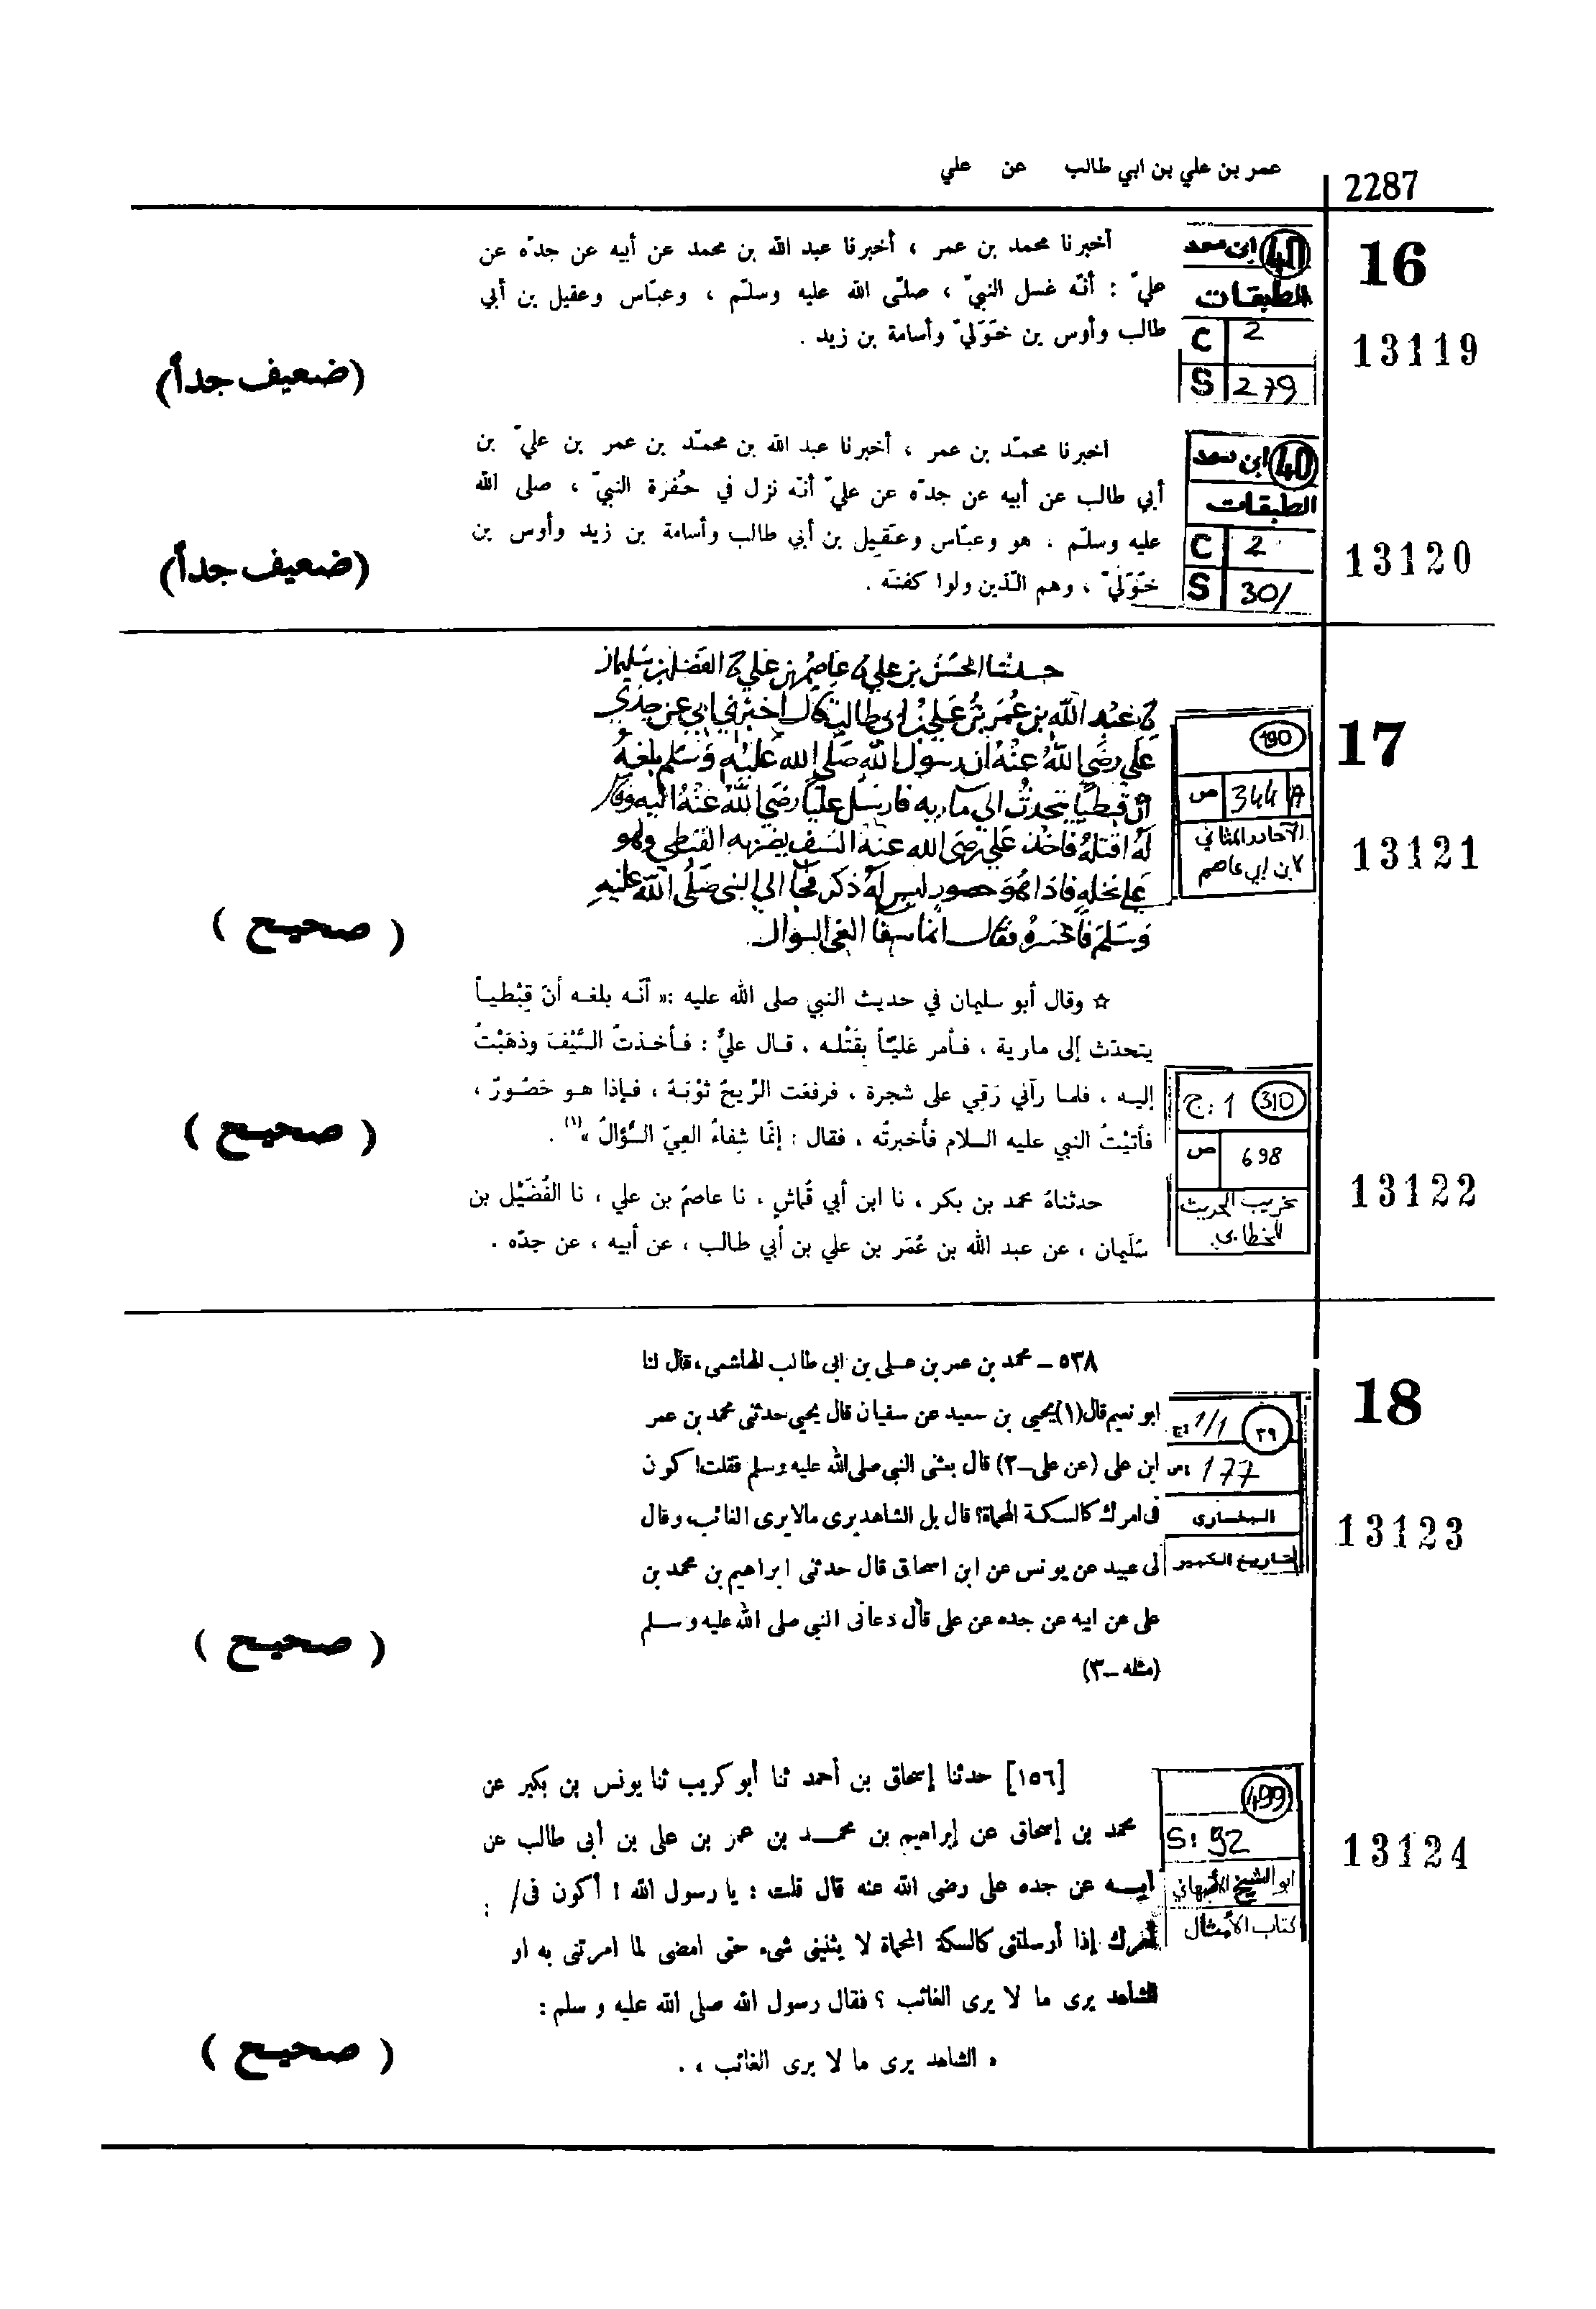 عمر بن علي بن ابي طالب عن علي
2287
16
40 ابن سعد
الطبقات
C 2
S 279
13119
أخبرنا محمد بن عمر ، أخبرنا عبد الله بن محمد عن أبيه عن جدّه عن
عليّ : أنّه غسل النبيّ ، صلّى الله عليه وسلّم ، وعبّاس وعقيل بن أبي
طالب وأوس بن خَوَليّ وأسامة بن زيد .
(ضعيف جداً)
40 ابن سعد
الطبقات
C 2
S 301
13120
أخبرنا محمّد بن عمر ، أخبرنا عبد الله بن محمّد بن عمر بن عليّ بن
أبي طالب عن أبيه عن جدّه عن عليّ أنّه نزل في حُفرة النبيّ ، صلى الله
عليه وسلّم ، هو وعبّاس وعَقيل بن أبي طالب وأسامة بن زيد وأوس بن
خَوَليّ ، وهم الّذين ولوا كفنَه .
(ضعيف جداً)
17
190
ص 344 A
الآحاد والمثاني
لابن ابي عاصم
13121
حدثنا الحسن بن علي عاصم بن علي الفضل بن سليمان
عبد الله بن عمر بن علي بن ابي طالب قال اخبرني ابي عن جدي
علي رضي الله عنه ان رسول الله صلى الله عليه وسلم بلغه
ان قبطيا يتحدث الى ماريه فارسل عليا رضي الله عنه اليه وقال
له اقتله فاخذ علي رضي الله عنه السيف القبطي وهو
على نخله فاذا هو حصور ليس له ذكر فجا الى النبي صلى الله عليه
وسلم فاخبره فقال انما شفا العي السوال
( صحيح )
310 ج: 1
ص 698
غريب الحديث
للخطابي
13122
☆ وقال أبو سليمان في حديث النبي صلى الله عليه :« أنّه بلغه أنّ قِبْطياً
يتحدّث إلى مارية ، فأمر عَليّاً بِقَتْله ، قال عليٌّ : فأخذتُ السَّيْفَ وذهَبْتُ
إليه ، فلما رآني رَقِي على شجرة ، فرفعت الرِّيحُ ثَوْبَهُ ، فإذا هو حَصُورٌ ،
فأتيْتُ النبي عليه السلام فأخبرتُه ، فقال : إنَّما شِفاءُ العِيِّ السُّؤالُ »(١) .
حدثناهُ محمد بن بكر ، نا ابن أبي قُماشٍ ، نا عاصمُ بن علي ، نا الفُضَيْل بن
سُلَيمان ، عن عبد الله بن عُمَر بن علي بن أبي طالب ، عن أبيه ، عن جدّه .
( صحيح )
18
٢٩ ج: 1/1
ص: 177
البخارى
التاريخ الكبير
13123
٥٣٨ – محمد بن عمر بن على بن ابى طالب الهاشمى، قال لنا
ابو نعيم قال(١) يحيى بن سعيد عن سفيان قال يحيى حدثنى محمد بن عمر
ابن على (عن على–٢) قال بعثنى النبى صلى الله عليه وسلم فقلت ! كون
فى امرك كالسكة المحماة؟ قال بل الشاهد يرى مالا يرى الغائب، وقال
لى عبيد عن يونس عن ابن اسحاق قال حدثنى ابراهيم بن محمد بن
على عن ابيه عن جده عن على قال دعانى النبى صلى الله عليه وسلم
(مثله –٣)
( صحيح )
499
S: 92
ابو الشيخ الأصبهاني
كتاب الأمثال
13124
[١٥٦] حدثنا إسحاق بن أحمد ثنا أبو كريب ثنا يونس بن بكير عن
محمد بن إسحاق عن إبراهيم بن محمد بن عمر بن على بن أبى طالب عن
أبيه عن جده على رضى الله عنه قال قلت : يا رسول الله ! أكون فى/ :
أمرك إذا أرسلتنى كالسكة المحماة لا يثنينى شىء حتى امضى لما امرتنى به او
الشاهد يرى ما لا يرى الغائب ؟ فقال رسول الله صلى الله عليه و سلم :
« الشاهد يرى ما لا يرى الغائب » .
( صحيح )